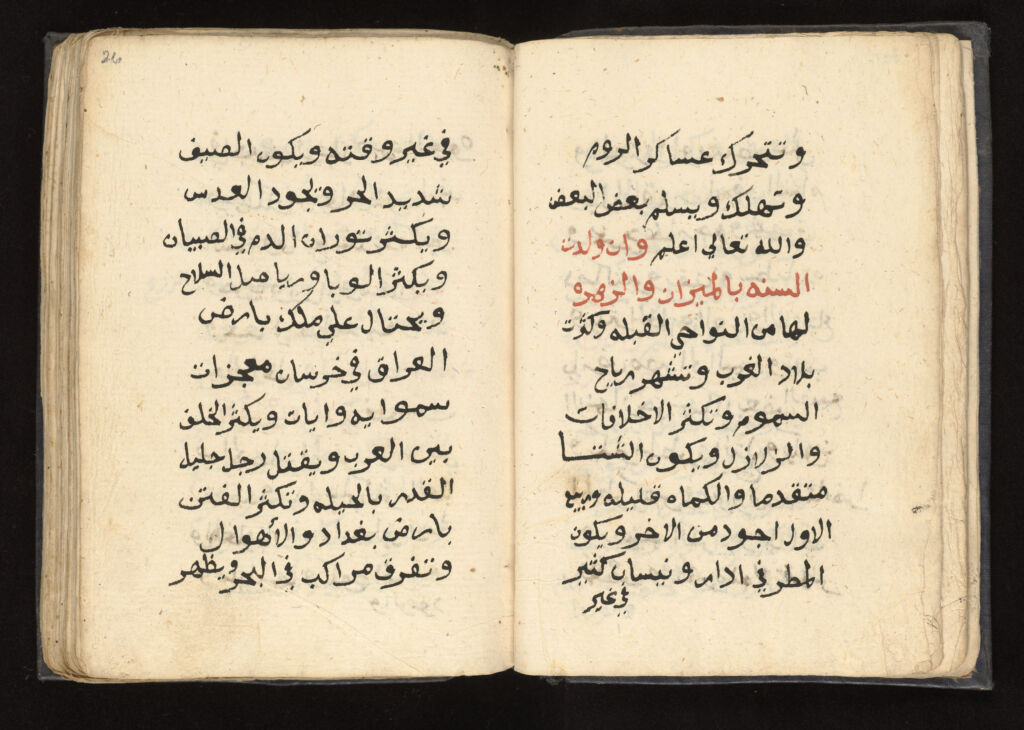 وتتحرك عساكر الروم
وتهلك ويسلم بعض البعض
والله تعالي اعلم وان ولدت
السنه بالميزان والزهره
لها من النواحي القبله وكرت
بلاد الغرب وتشهر رياح
السموم وتكثر الاخلافات
والزلازل ويكون الشتا
متقدما والكماه قليله وربيع
الاول اجود من الاخر ويكون
المطر في ادار ونيسان كثير
في غير
26
في غير وقته ويكون الصيف
شديد الحر وتجود العدس
ويكثر توران الدم في الصبيان
ويكثر الوبا و السلاح
ويحتال علي ملك بارض
العراق في خرسان معجزات
سموايه وايات ويكثر الخلف
بين العرب ويقتل رجل جليل
القدر بالحيله وتكثر الفتن
بارض بغداد والأهوال
وتفرق مراكب في البحر ويظهر